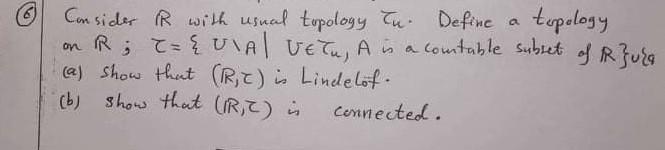 ⑥ Consider ℝ with usual topology τu. Define a topology
on ℝ ; τ = { U\A | U ∈ τu, A is a countable subset of ℝ } ∪ {
(a) show that (ℝ,τ) is Lindelöf.
(b) show that (ℝ,τ) is connected.